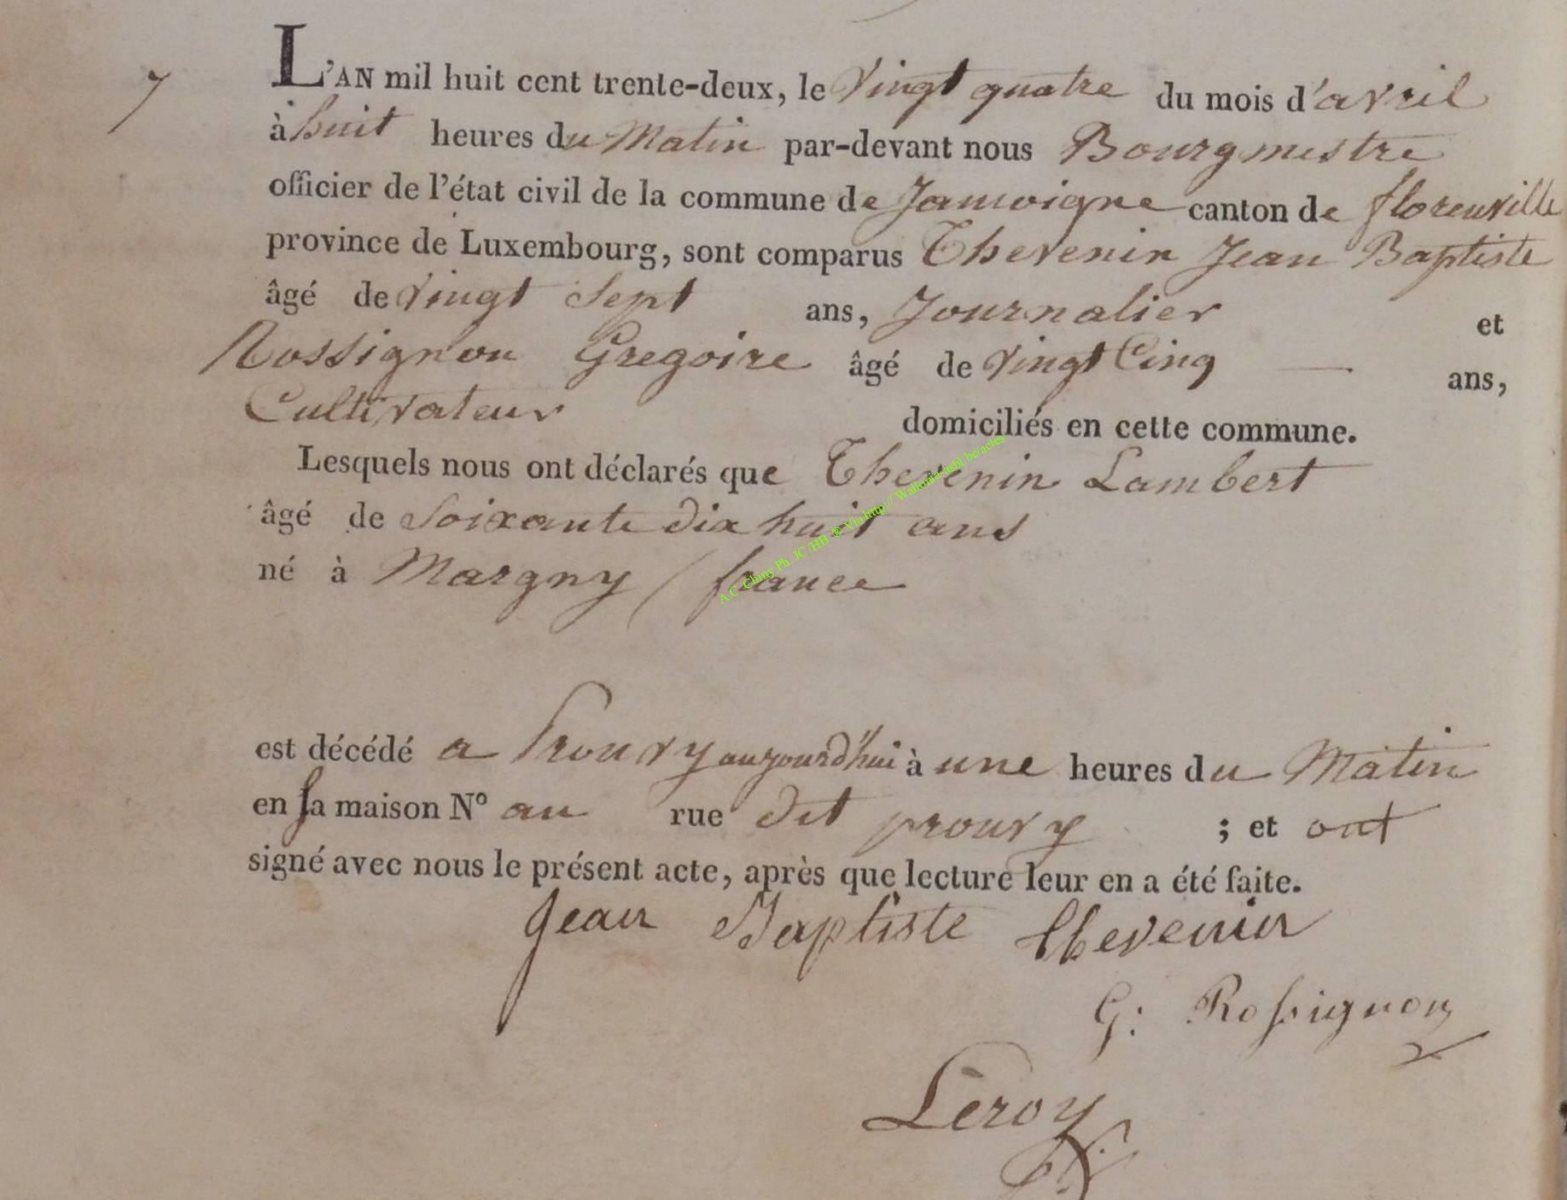 7
L'AN mil huit cent trente-deux, le Vingt quatre du mois d'avril
à huit heures du Matin par-devant nous Bourgmestre
officier de l'état civil de la commune de Jamoigne canton de florenville
province de Luxembourg, sont comparus Thevenin Jean Baptiste
âgé de Vingt Sept ans, Journalier et
Rossignon Gregoire âgé de Vingt Cinq — ans,
Cultivateur domiciliés en cette commune.
Lesquels nous ont déclarés que Thevenin Lambert
âgé de Soixante dix huit ans
né à Margny / france
est décédé a Prouvy aujourd'hui à une heures du Matin
en sa maison N° au rue dit prouvy ; et ont
signé avec nous le présent acte, après que lecture leur en a été faite.
Jean Baptiste thevenin
G: Rossignon
Leroy